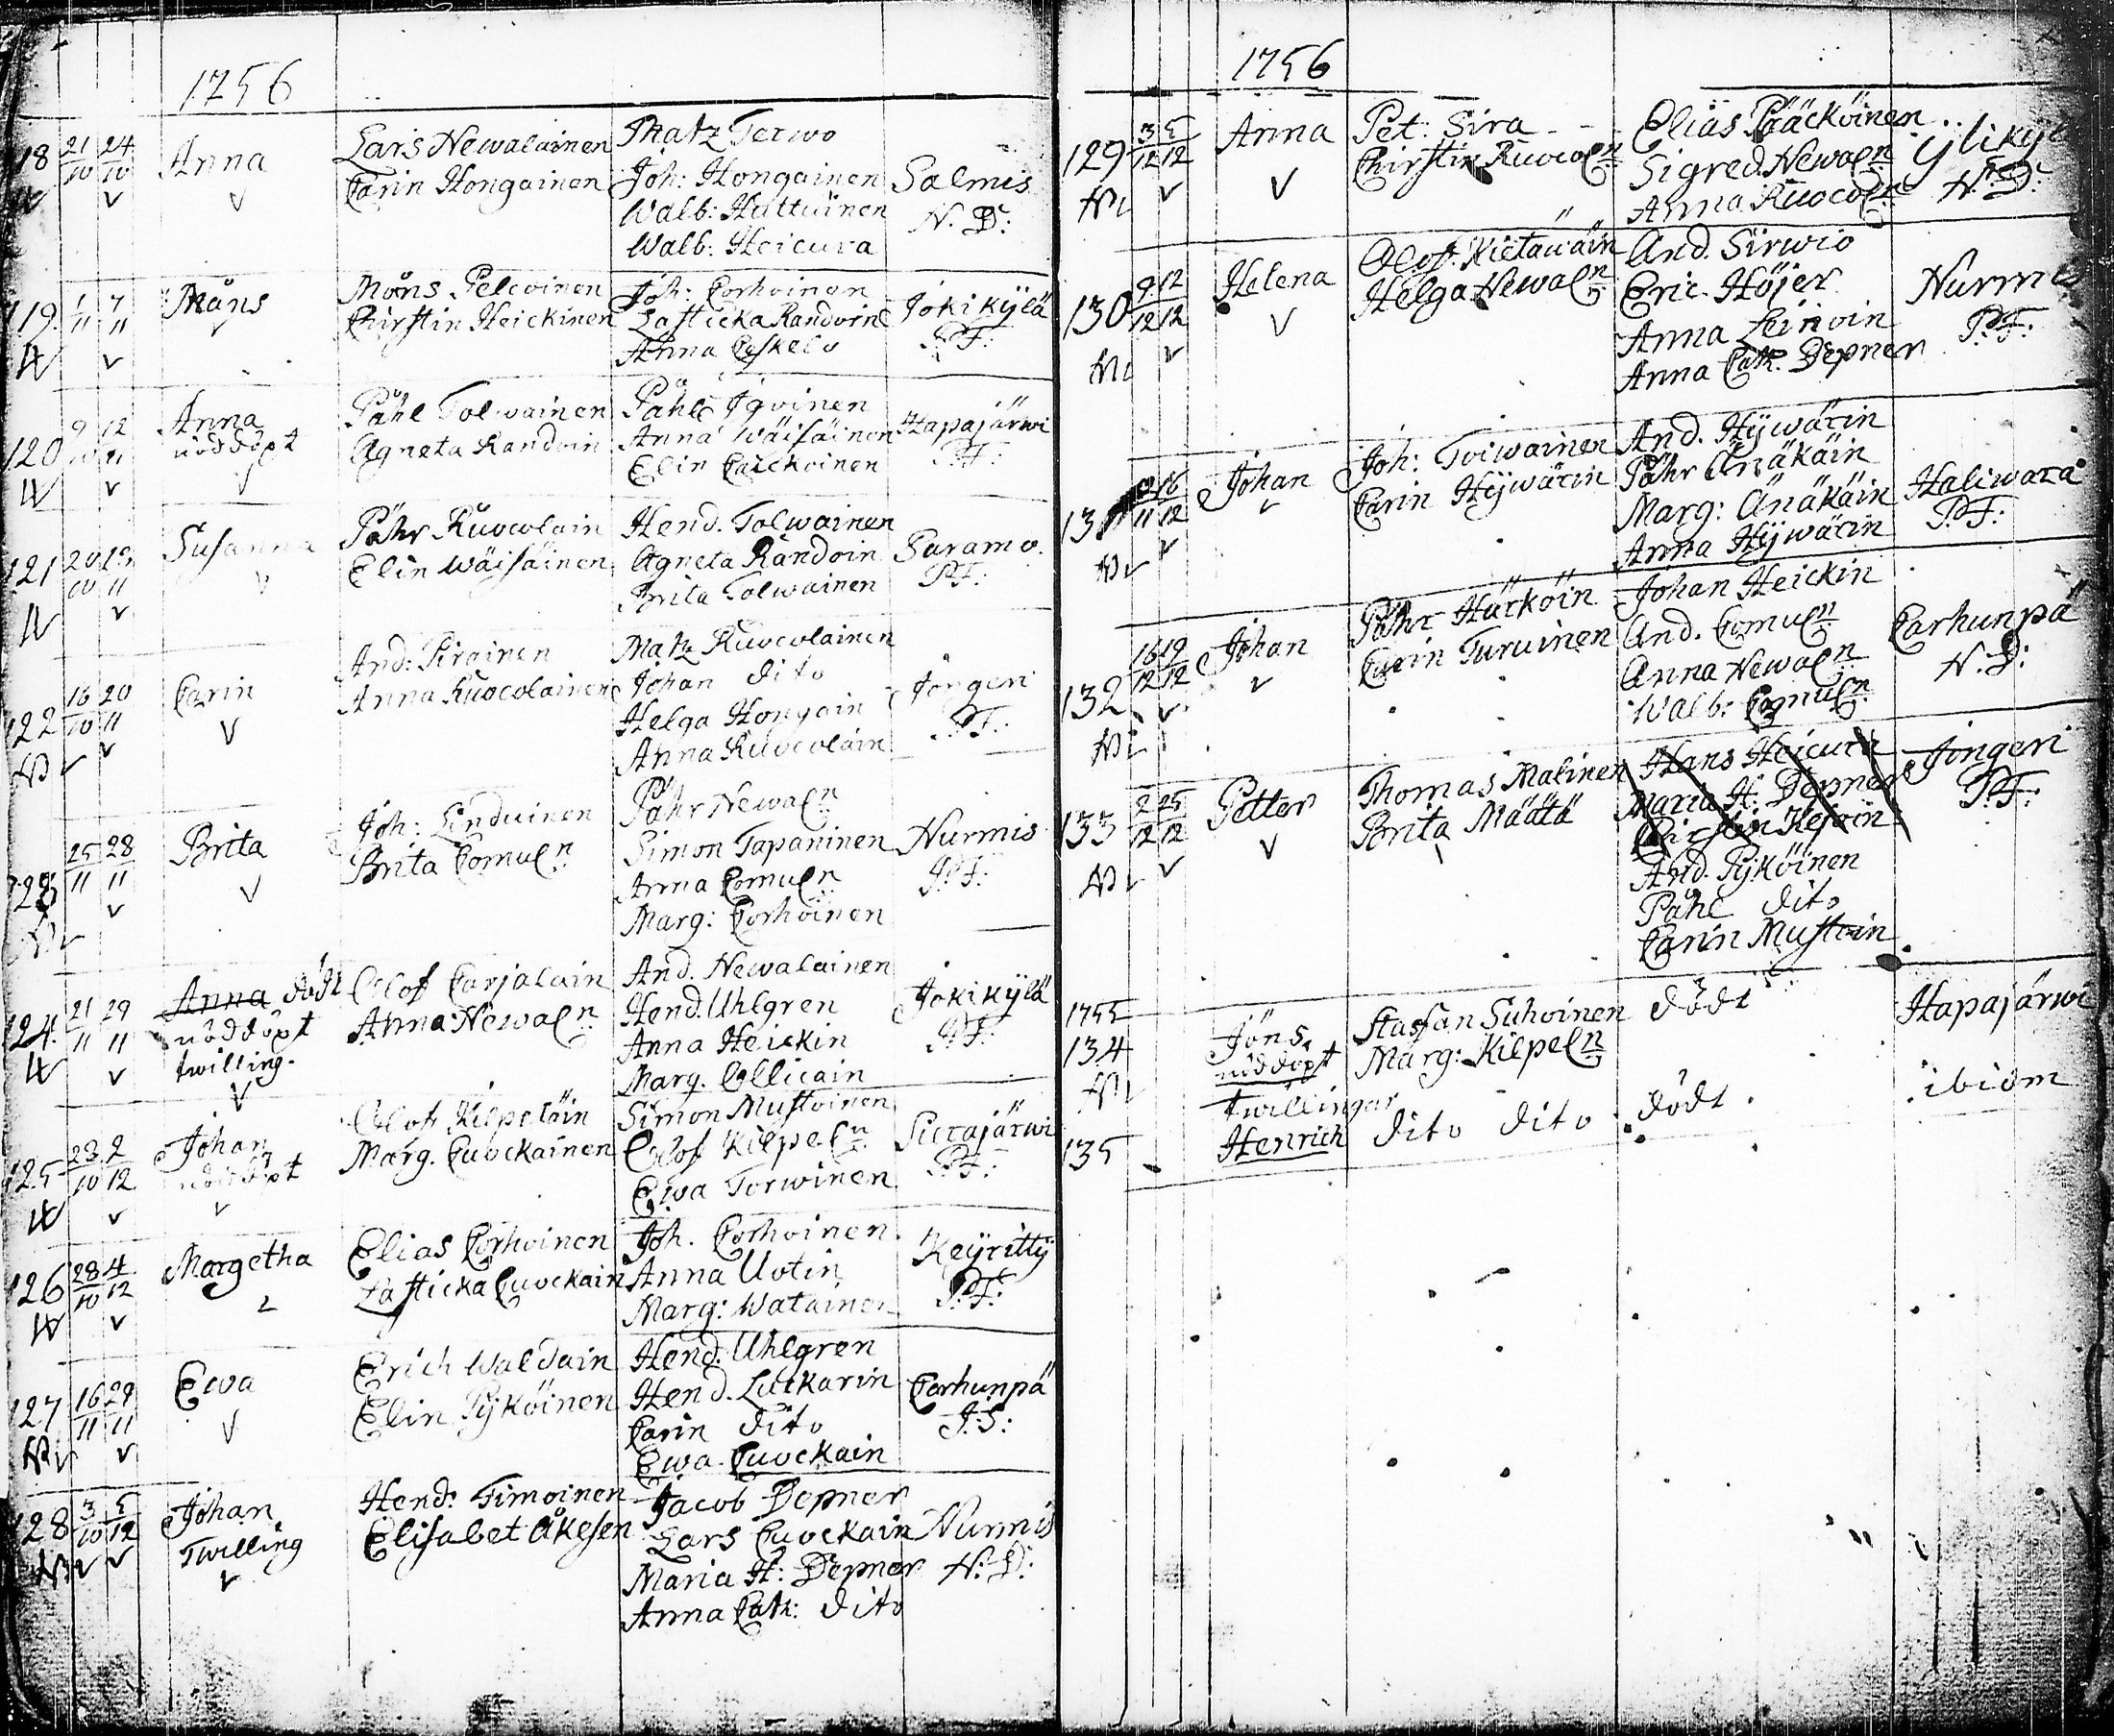 1756
118 21/10 24/10 Anna Lars Newalainen Matz Terwo
Carin Hongainen Joh: Hongainen Salmis
Walb: Huttuinen N. D:
Walb: Heicura
119 1/11 7/11 Måns Måns Pelcoinen Joh: Corhoinen Jokikÿlä
Chirstin Heickinen Lasticka Randoin P.F:
Anna Coskelo
120 9/11 12/11 Anna Påhl Tolwainen Påhl
nöddöpt Agneta Randoin Anna Wäisäinen Hapajärwi
Elin P.F:
121 20/10 /11 Susanna Påhr Ruocolain Hend. Tolwainen
Elin Wäisäinen Agneta Randoin Saramo.
Brita Tolwainen P.F:
122 16/10 20/11 Carin And: Pirainen Matz Ruocolainen
Anna Ruocolainen Johan dito Jongeri
Helga Hongain P.F:
Anna Ruocolain
123 25/11 28/11 Brita Joh: Linduinen Påhr Newaln
Brita Comuln Simon Tapaninen Nurmis
Anna Comuln P.F:
Marg: Corhoinen
124 21/11 29/11 Anna dödt Olof Carjalain And. Newalainen
nöddöpt Anna Newaln Hend. Uhlgren Jokikÿlä
twilling. Anna Heickin P.F:
Marg. Collicain
125 23/10 2/12 Johan Olof Kilpeläin Simon Mustoinen
nöddöpt Marg. Cuockainen Olof Kilpeln
Ewa Torwinen P.F:
126 28/10 4/12 Margetha Elias Corhoinen Joh. Corhoinen Keÿrittÿ
Lasticka Cuockain Anna Uotin P.F:
Marg: Watainen
127 16/11 29/11 Ewa Erich Waldain Hend. Uhlgren
Elin Pÿköinen Hend. Luckarin Carhunpä
Carin dito J.S:
Ewa Cuockain
128 3/10 5/12 Johan Hend: Timoinen Jacob Depner
Twilling Elisabet Åkesen Lars Cuockain Nurmis
Maria H: Depner N. D:
Anna Cath: dito
1756
129 3/12 5/12 Anna Pet: Sira Elias Pääcköinen Ÿlikÿl
Chirstin Ruocoln Sigred Newaln N. D:
Anna Ruocoln
130 9/12 12/12 Helena Olof Kietäwäin And. Sirwio
Helga Newaln Eric Höjer Nurmis
Anna Leinoin P.F:
Anna Cath. Depner
131 /11 16/12 Johan Joh: Toiwainen And. Hÿwärin
Carin Hÿwärin Påhr Änäkäin Haliwara
Marg: Änäkäin P.F:
Anna Hÿwärin
132 16/12 19/12 Johan Påhr Härköin Johan Heickin
Carin Turuinen And. Comuln Carhunpä
Anna Newaln N. D:
Walb: Comuln
133 2/12 25/12 Petter Thomas Malinen Hans Heicura Jongeri
Brita Määtä Maria H: Depner P.F:
Chirstin
And. Pÿköinen
Påhl dito
Carin Mustoin
1755
134 Jöns Staffan Suhoinen dödt Hapajärwi
nöddöpt Marg: Kilpeln
Twillingar
135 Henrich dito dito dödt ibidm